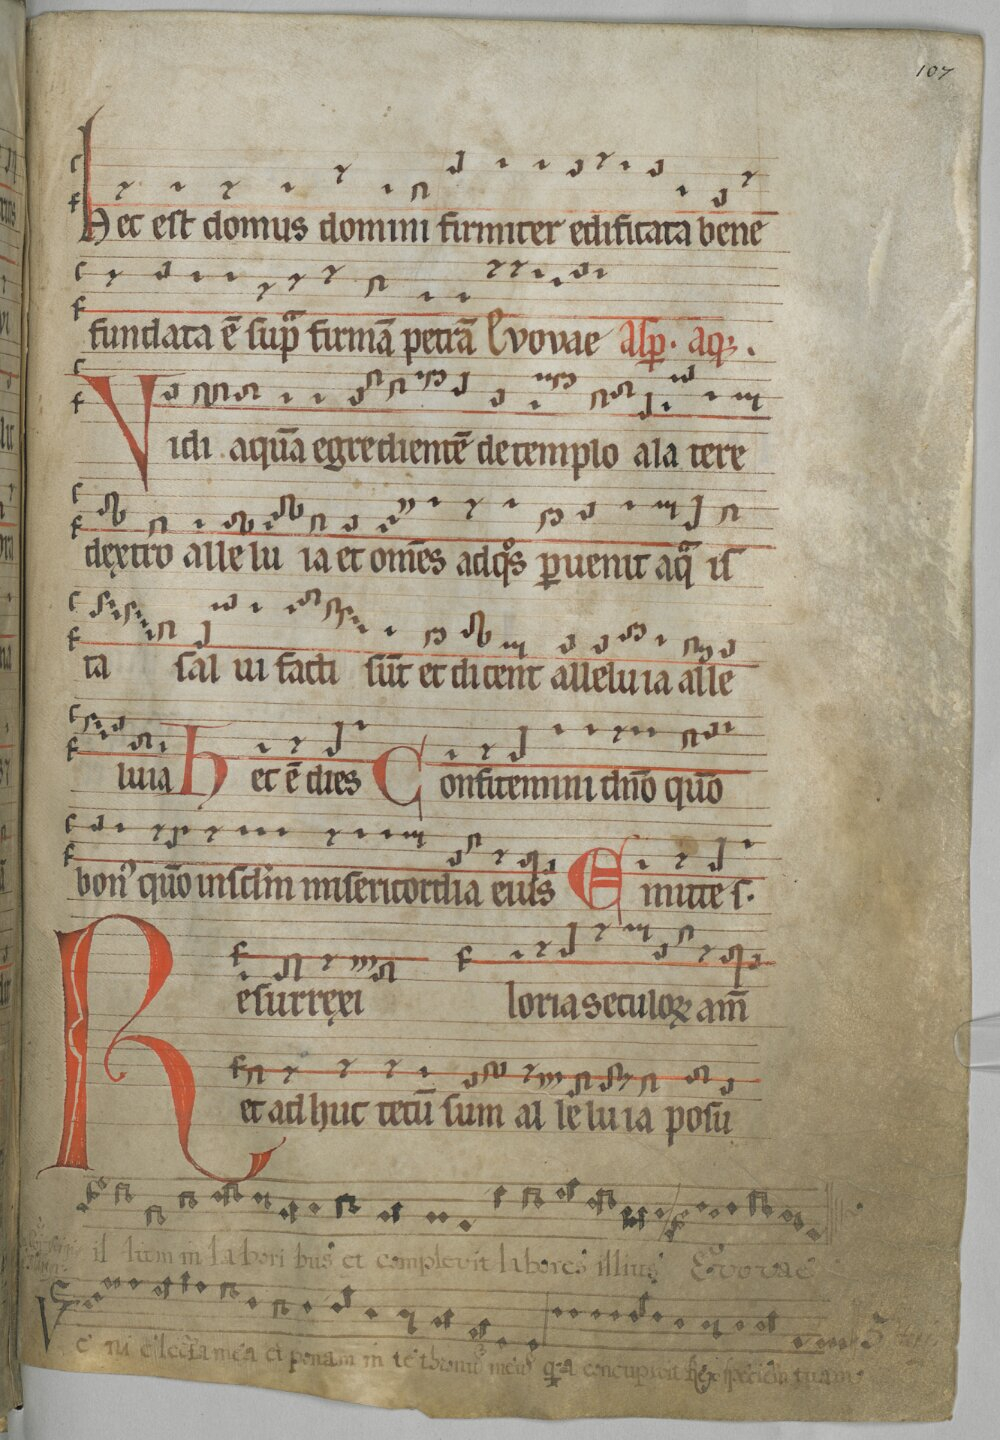 107
Hec est domus domini firmiter edificata bene
fundata ē sup̄ firmā petrā Evovae Asp. aq.
Vidi aquā egredientē de templo a la tere
dextro alle lu ia et om̄es ad qͦs peruenit aq̄ is
ta sal ui facti sūt et dicent alleluia alle
luia Hec ē dies Confitemini dn̄o quō
bon᾽ quō in sclm̄ misericordia eius Emitte s.
Resurrexi loria seculoꝝ am̄
et adhuc tecū sum al le lu ia posu
il lum in la bori bus et complevit labores illius Evovae
Ve ni electa mea et ponam in te thronū meū q¹a concupivit Rex speciem tuam